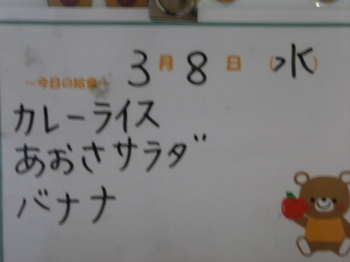 3月8日(水)
～今日の給食～
カレーライス
あおさサラダ
バナナ